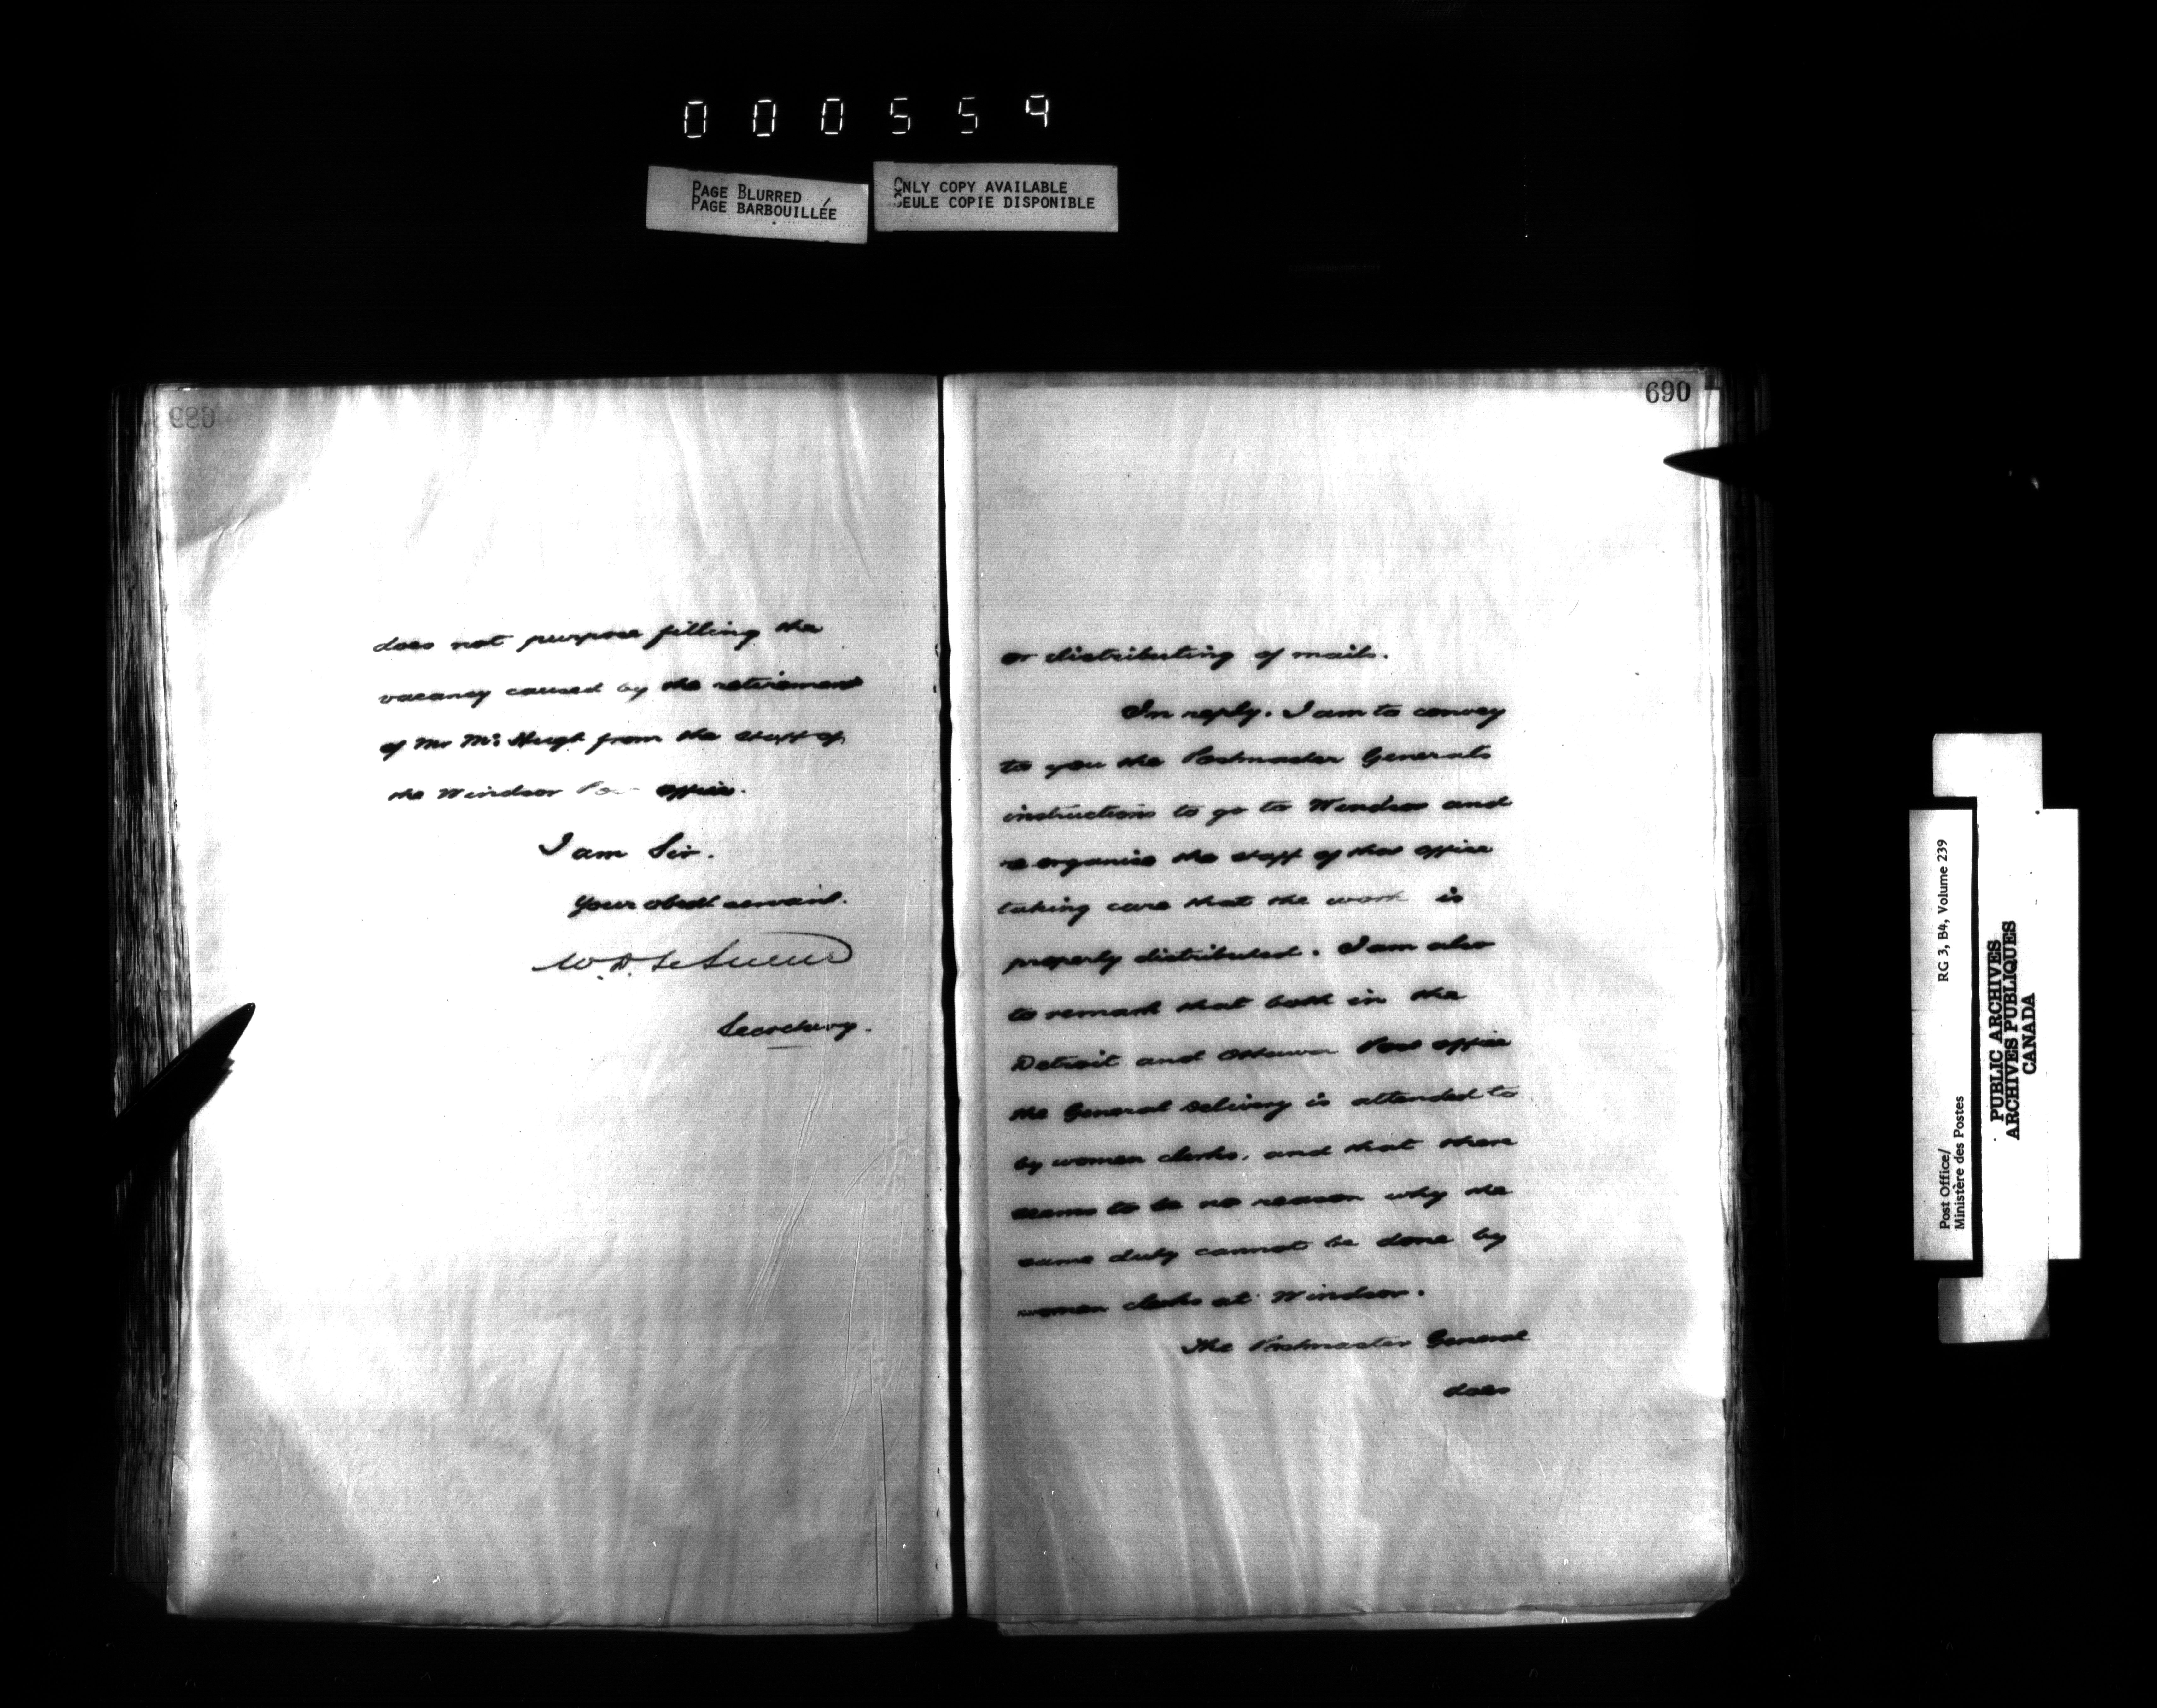 000559
PAGE BLURRED
PAGE BARBOUILLÉE
ONLY COPY AVAILABLE
SEULE COPIE DISPONIBLE
689
does not purpose filling the
vacancy caused by the retirement
of Mr McHugh from the staff of
the Windsor Post office.
I am Sir.
Your obedt servant.
W.D. LeSueur
Secretary.
690
or distributing of mails.
In reply. I am to convey
to you the Postmaster Generals
instructions to go to Windsor and
re organise the staff of that office
taking care that the work is
properly distributed. I am also
to remark that both in the
Detroit and Ottawa Post office
the General Delivery is attended to
by women clerks, and that there
seems to be no reason why the
same duty cannot be done by
women clerks at Windsor.
The Postmaster General
does
Post Office/
Ministère des Postes
RG 3, B4, Volume 239
PUBLIC ARCHIVES
ARCHIVES PUBLIQUES
CANADA